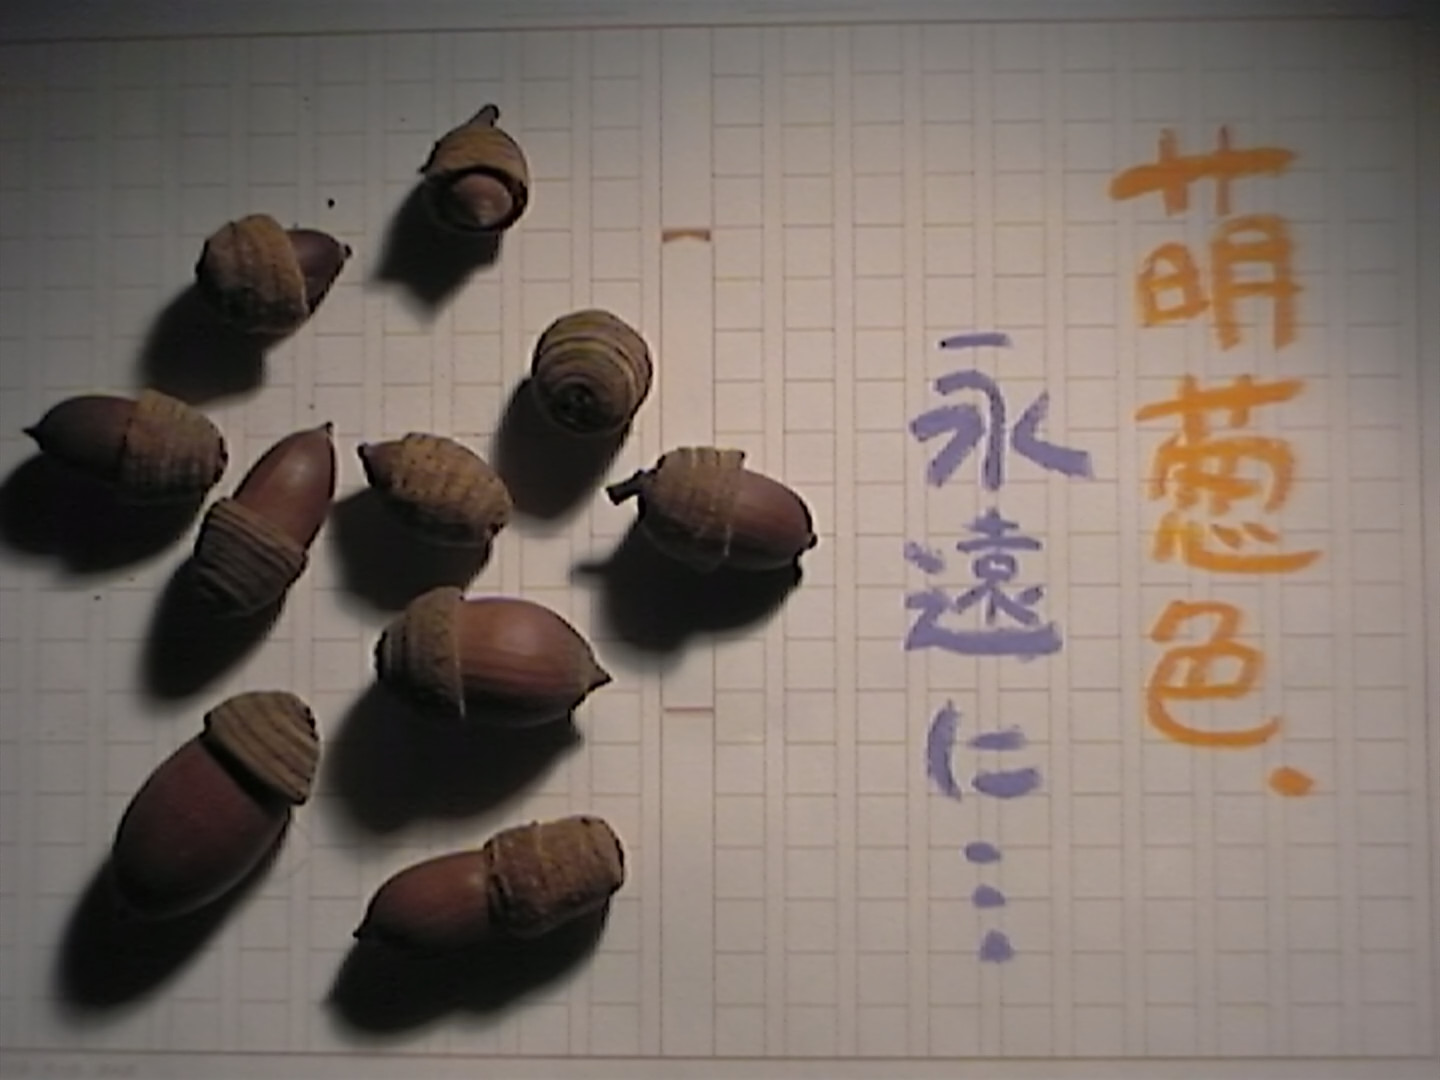 萌葱色.
永遠に…